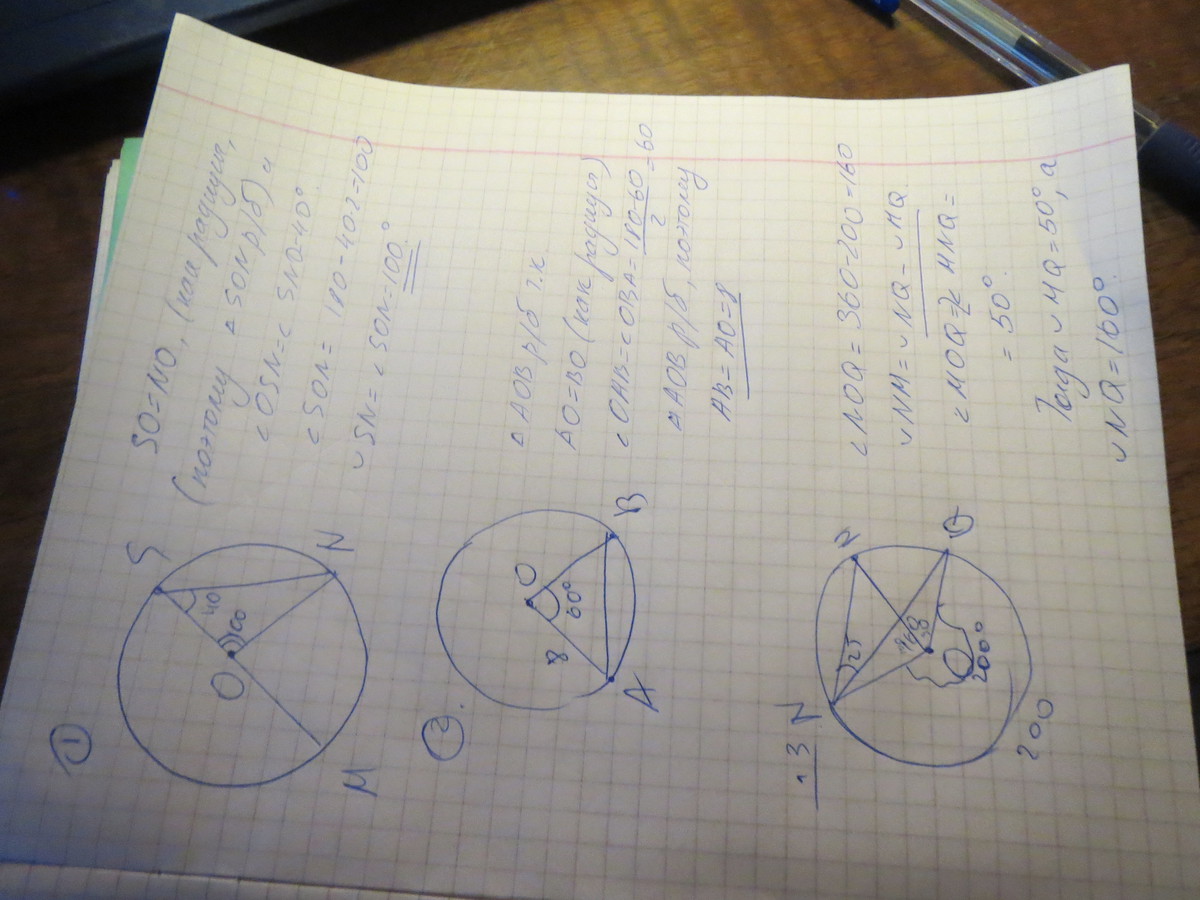 ①
S
N
O
M
40
100
SO=NO, (как радиусы,
(поэтому △SON р/б) и
∠OSN=∠SNO=40°.
∠SON= 180-40·2=100
◡SN=∠SON=100°
②.
O
8
60°
A
B
△AOB р/б т.к.
AO=BO (как радиусы)
∠OAB=∠OBA=180-60/2=60
△AOB р/б, поэтому
AB=AO=8
3
N
Q
25
O
200°
200
∠NOQ = 360-200=160
◡NM=◡NQ-◡MQ.
∠MOQ= MNQ=
= 50°.
Тогда ◡MQ=50°, а
◡NQ=160°.